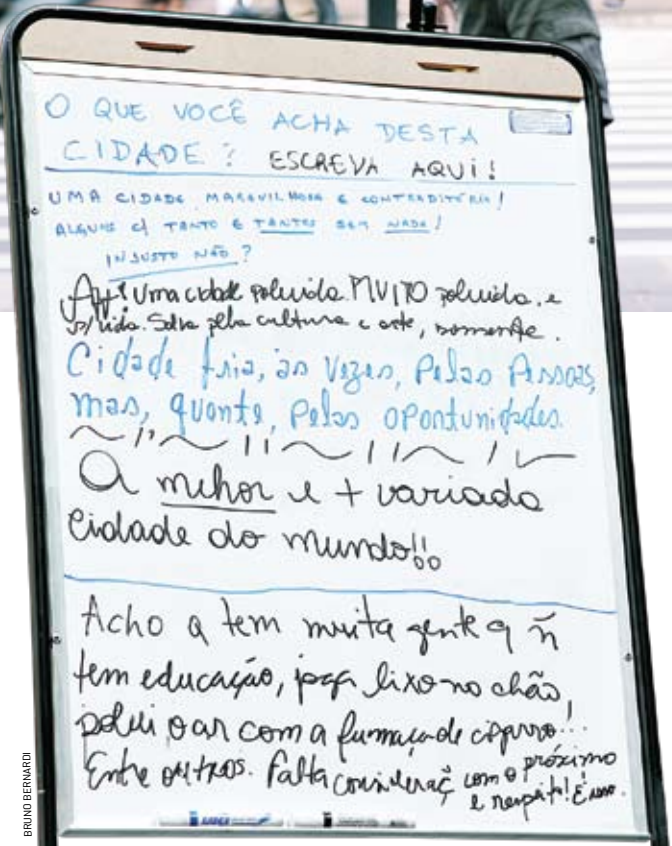 O QUE VOCÊ ACHA DESTA
CIDADE? ESCREVA AQUI!
UMA CIDADE MARAVILHOSA E CONTRADITÓRIA!
ALGUNS C/ TANTO E TANTOS SEM NADA!
INJUSTO NÃO?
Uma cidade poluída. MUITO poluída, e
Salva pela cultura e arte, somente.
Cidade fria, às vezes, Pelas Pessoas,
mas, quente, Pelas oportunidades.
A melhor e + variada
cidade do mundo!!
Acho q tem muita gente q ñ
tem educação, joga lixo no chão,
polui o ar com a fumaça de cigarro!...
Entre outros. Falta consideraç com o próximo
e respeito! É isso.
BRUNO BERNARDI